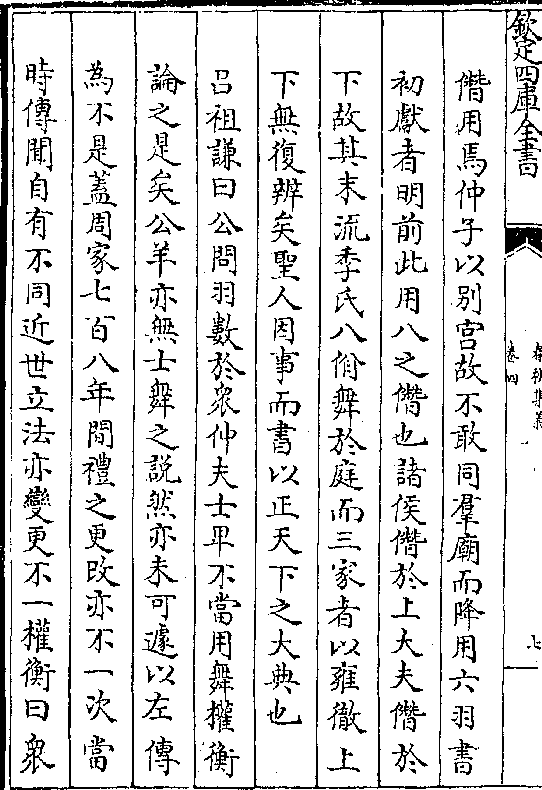 欽定四庫全書
春秋集義
卷四
七
僭用焉仲子以别宫故不敢同羣廟而降用六羽書
初獻者明前此用八之僭也諸侯僭於上大夫僭於
下故其末流季氏八佾舞於庭而三家者以雍徹上
下無復辨矣聖人因事而書以正天下之大典也
吕祖謙曰公問羽數於衆仲夫士卑不當用舞權衡
論之是矣公羊亦無士舞之説然亦未可遽以左傳
為不是蓋周家七百八年間禮之更改亦不一次當
時傳聞自有不同近世立法亦變更不一權衡曰衆